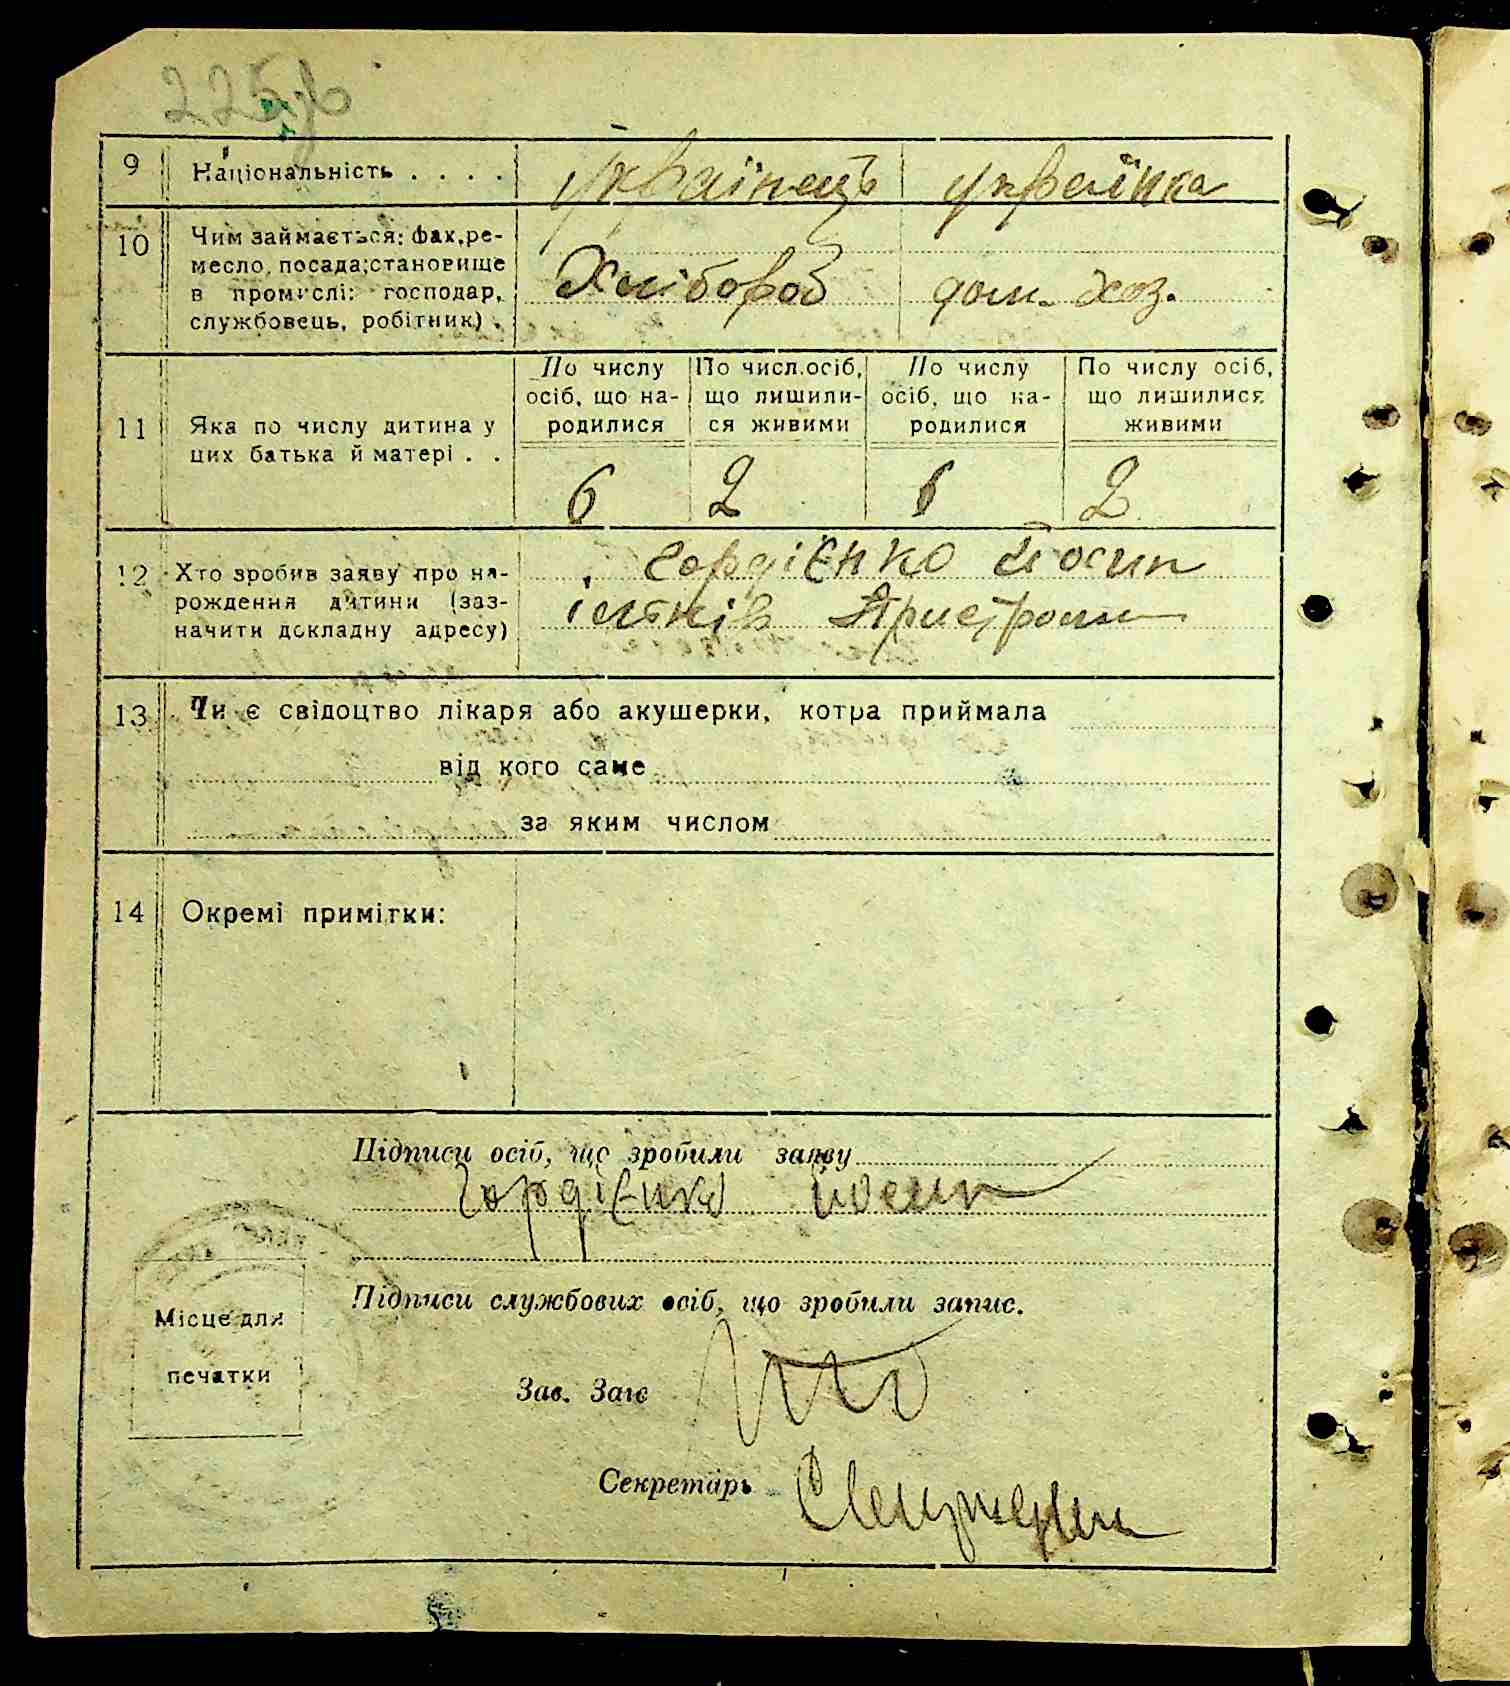 225
9 Національність . . . . українець українка
10 Чим займається: фах, ре-
месло, посада; становище
в промислі: господар,
службовець, робітник) .
Хлібороб дом. хоз.
По числу осіб, що на-родилися
По числ. осіб, що лишили-ся живими
По числу осіб, що на-родилися
По числу осіб, що лишилися живими
11 Яка по числу дитина у
цих батька й матері . .
6 2 6 2
12 Хто зробив заяву про на-
рождення дитини (заз-
начити докладну адресу)
Гордієнко Йосип
13 Чи є свідоцтво лікаря або акушерки, котра приймала
від кого саме
за яким числом
14 Окремі примітки:
Підписи осіб, що зробили заяву
Гордієнко Йосип
Підписи службових осіб, що зробили запис.
Місце для
печатки
Зав. Загс
Секретарь